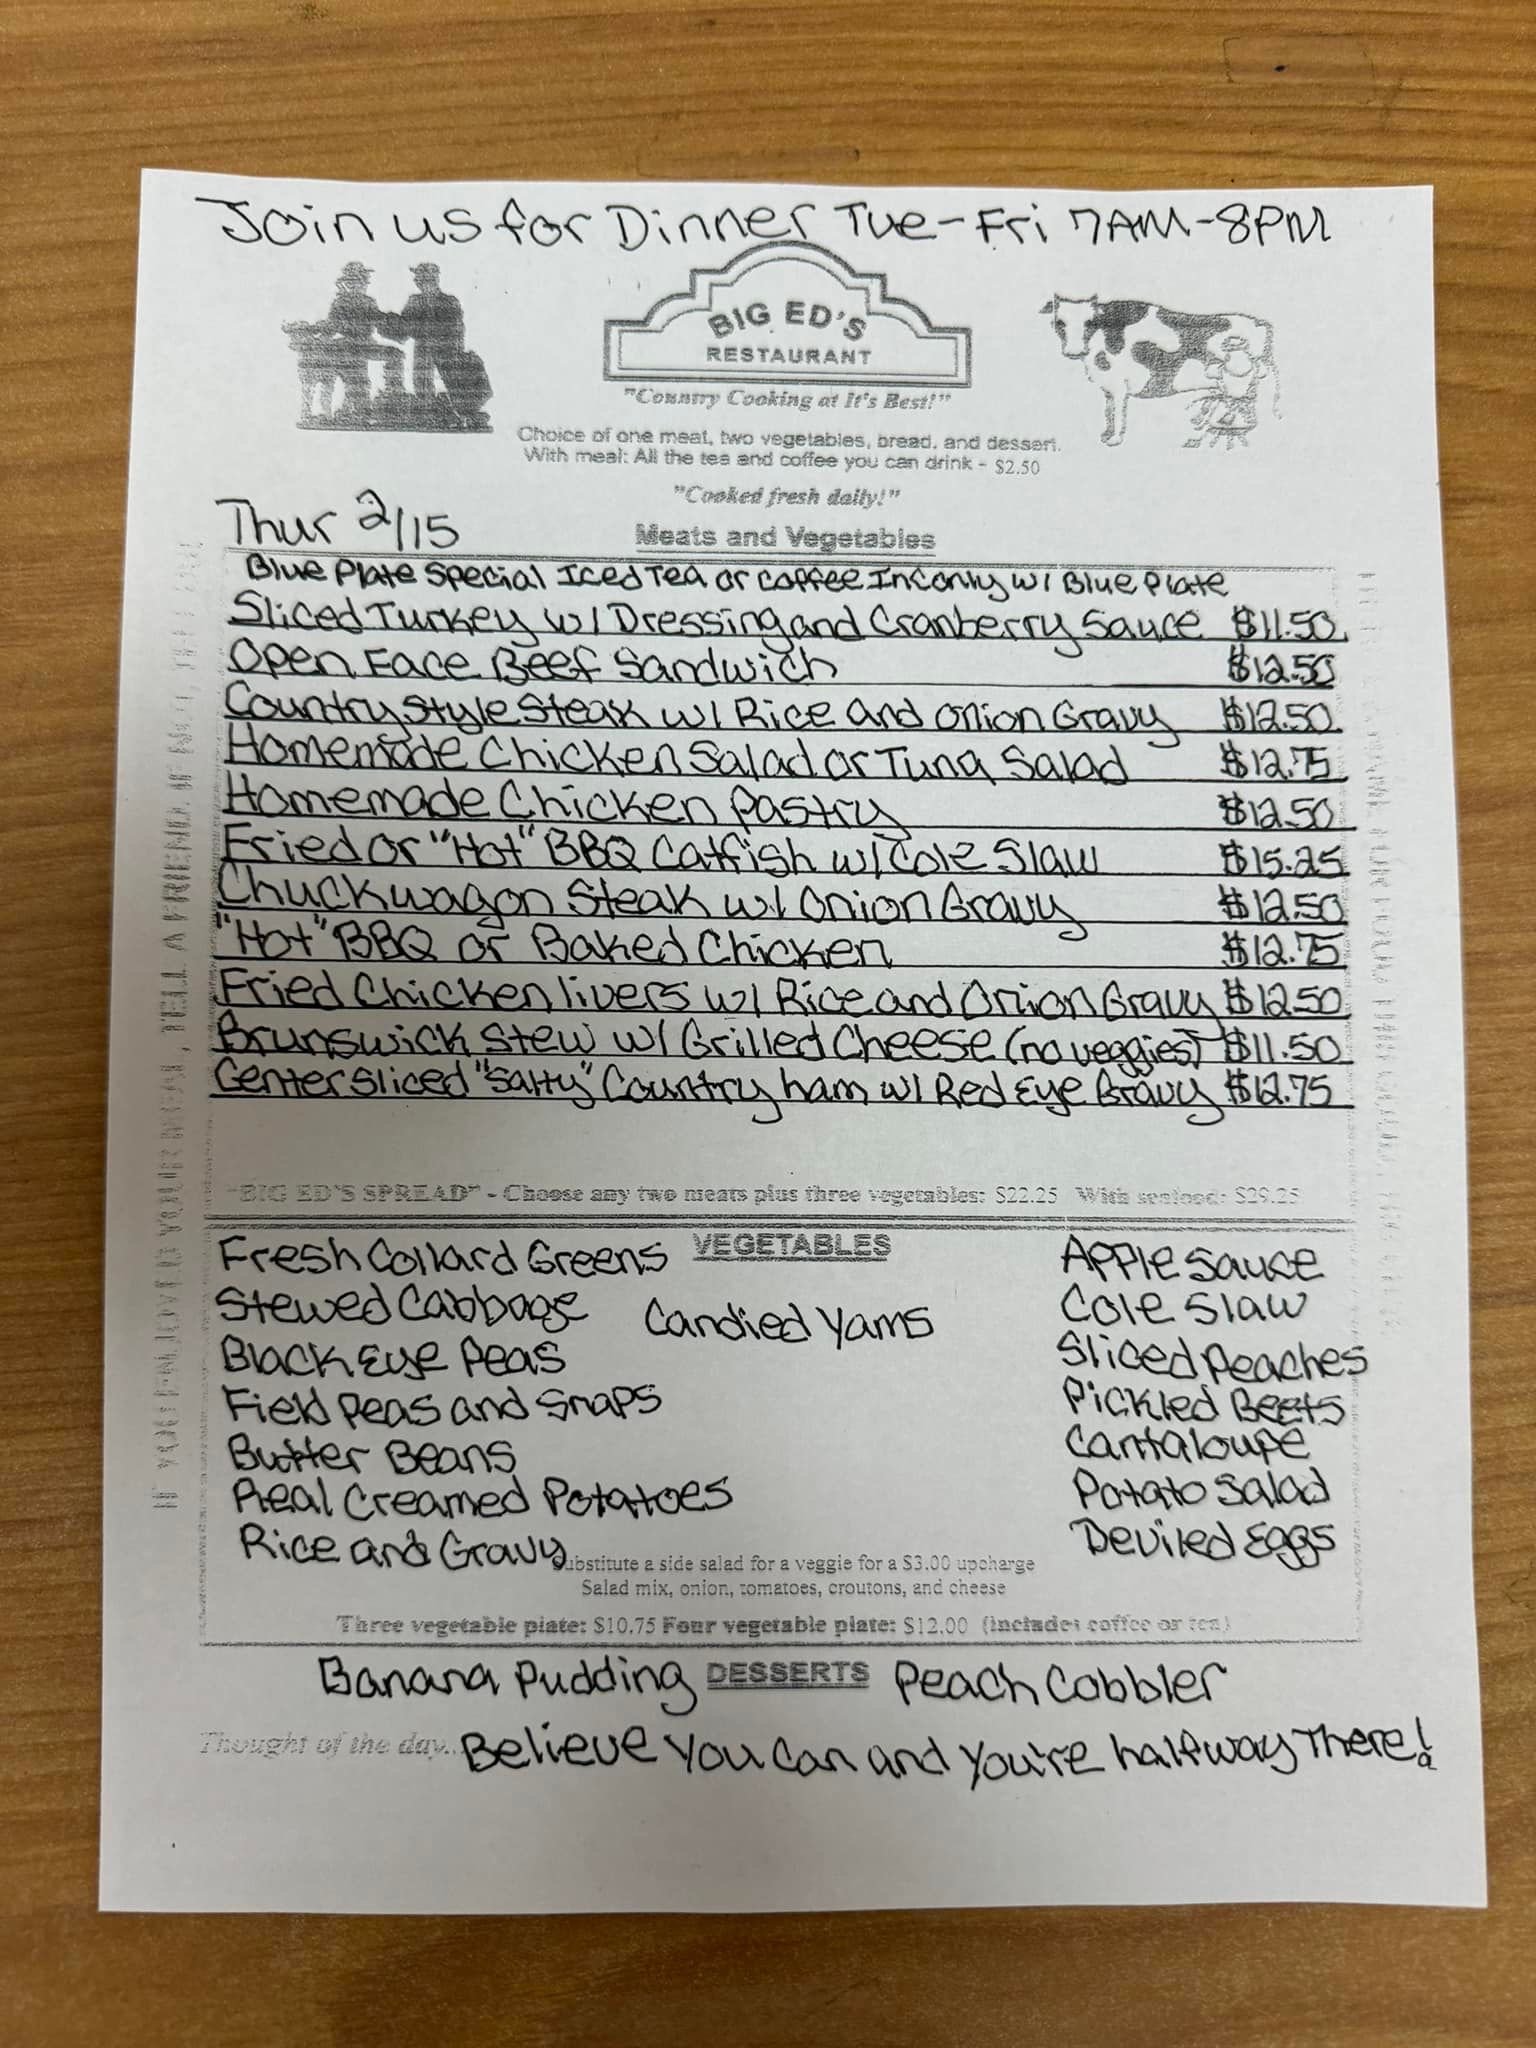 Join us for Dinner Tue-Fri 7AM-8PM
BIG ED'S
RESTAURANT
"Country Cooking at It's Best!"
Choice of one meat, two vegetables, bread, and dessert.
With meal: All the tea and coffee you can drink - $2.50
"Cooked fresh daily!"
Thur 2/15
Meats and Vegetables
Blue Plate Special Iced Tea or Coffee Inc only w/ Blue Plate
Sliced Turkey w/ Dressing and Cranberry Sauce $11.50
Open Face Beef Sandwich $12.50
Country Style Steak w/ Rice and Onion Gravy $12.50
Homemade Chicken Salad or Tuna Salad $12.75
Homemade Chicken Pastry $12.50
Fried or "Hot" BBQ Catfish w/ Cole Slaw $15.25
Chuckwagon Steak w/ Onion Gravy $12.50
"Hot" BBQ or Baked Chicken $12.75
Fried Chicken livers w/ Rice and Onion Gravy $12.50
Brunswick Stew w/ Grilled Cheese (no veggies) $11.50
Center Sliced "Salty" Country ham w/ Red Eye Gravy $12.75
"BIG ED'S SPREAD" - Choose any two meats plus three vegetables: $22.25 With seafood: $29.25
VEGETABLES
Fresh Collard Greens
Stewed Cabbage
Black Eye Peas
Field Peas and Snaps
Butter Beans
Real Creamed Potatoes
Rice and Gravy
Candied Yams
Apple Sauce
Cole Slaw
Sliced Peaches
Pickled Beets
Cantaloupe
Potato Salad
Deviled Eggs
Substitute a side salad for a veggie for a $3.00 upcharge
Salad mix, onion, tomatoes, croutons, and cheese
Three vegetable plate: $10.75 Four vegetable plate: $12.00 (includes coffee or tea)
Banana Pudding DESSERTS Peach Cobbler
Thought of the day... Believe You Can and You're halfway There!
IF YOU ENJOYED YOUR MEAL, TELL A FRIEND. IF NOT, TELL